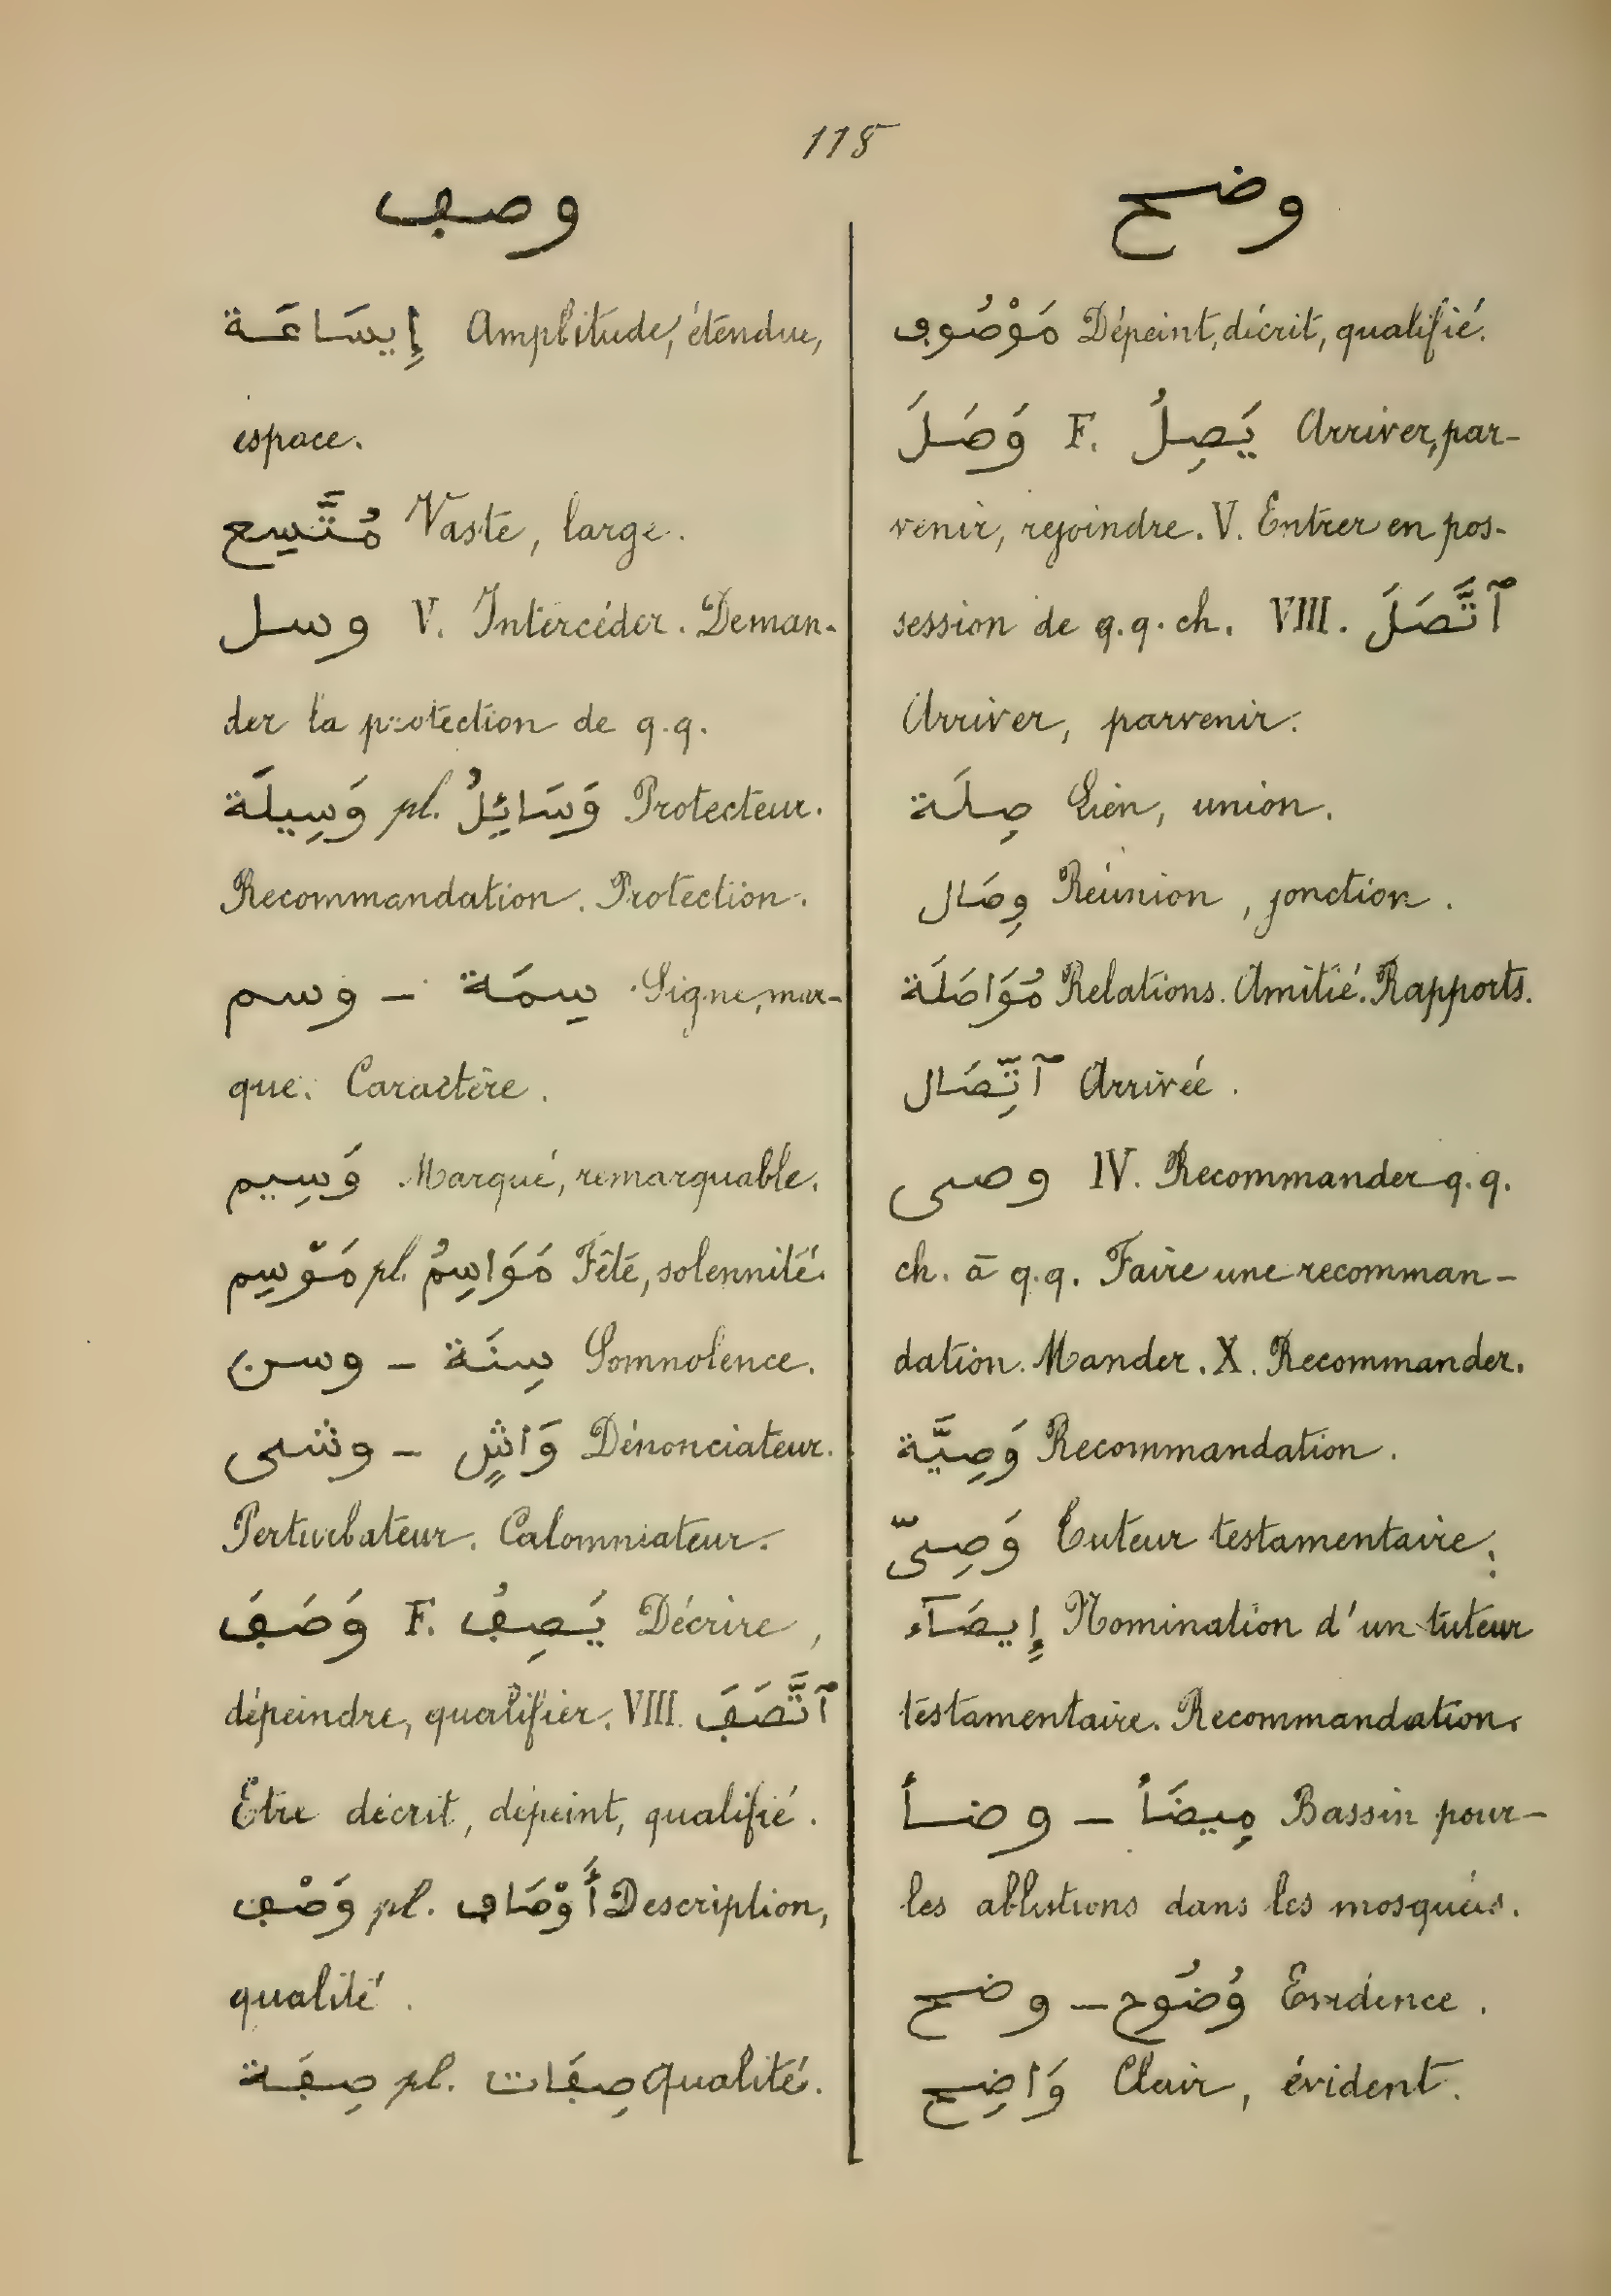 118
وصڢ
إِيسَاعَة Amplitude, étendue,
espace.
مُتَّسِع Vaste, large.
وسل V. Intercéder. Deman-
der la protection de q.q.
وَسِيلَة pl. وَسَائِلُ Protecteur.
Recommandation. Protection.
وسم – سِمَة Signe, mar-
que. Caractère.
وَسِيم Marqué, remarquable.
مَوْسِم pl. مَوَاسِمُ Fête, solennité.
وسن – سِنَة Somnolence.
وشى – وَاشٍ Dénonciateur.
Perturbateur. Calomniateur.
وَصَڢَ F. يَصِڢُ Décrire,
dépeindre, qualifier. VIII. ٱتَّصَڢَ
Etre décrit, dépeint, qualifié.
وَصْڢ pl. أَوْصَاڢ Description,
qualité.
صِڢَة pl. صِڢَات Qualité.
وضح
مَوْصُوڢ Dépeint, décrit, qualifié.
وَصَلَ F. يَصِلُ Arriver, par-
venir, rejoindre. V. Entrer en pos-
session de q.q. ch. VIII. ٱتَّصَلَ
Arriver, parvenir.
صِلَة Lien, union.
وِصَال Réunion, jonction.
مُوَاصَلَة Relations. Amitié. Rapports.
ٱتِّصَال Arrivée.
وصى IV. Recommander q.q.
ch. à q.q. Faire une recomman-
dation. Mander. X. Recommander.
وَصِيَّة Recommandation.
وَصِىّ Tuteur testamentaire.
إِيصَآء Nomination d'un tuteur
testamentaire. Recommandation.
وضأ – مِيضَأ Bassin pour
les ablutions dans les mosquées.
وضح – وُضُوح Evidence.
وَاضِح Clair, évident.